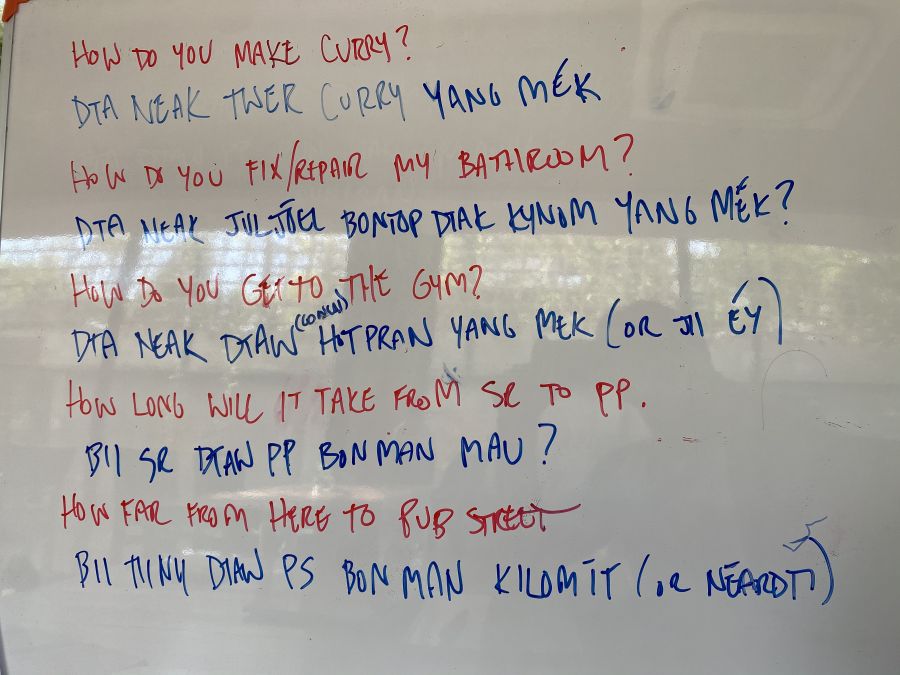 HOW DO YOU MAKE CURRY?
DTA NEAK TWER CURRY YANG MÉK
HOW DO YOU FIX/REPAIR MY BATHROOM?
DTA NEAK JUL JŌEL BONTOP DTAK KYNOM YANG MÉK?
HOW DO YOU GET TO THE GYM?
DTA NEAK DTAW HOTPRAN YANG MEK (OR JII ÉY)
HOW LONG WILL IT TAKE FROM SR TO PP.
BII SR DTAW PP BONMAN MAU?
HOW FAR FROM HERE TO PUB STREET
BII TIINY DTAW PS BONMAN KILOMĪT (OR NĒARDTI)